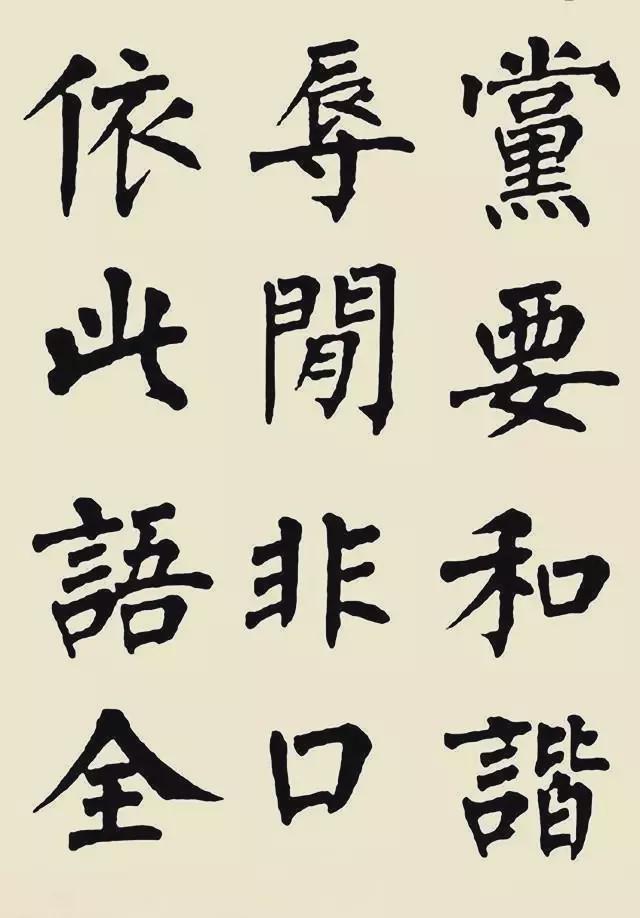 黨要和諧
辱閒非口
依此語全